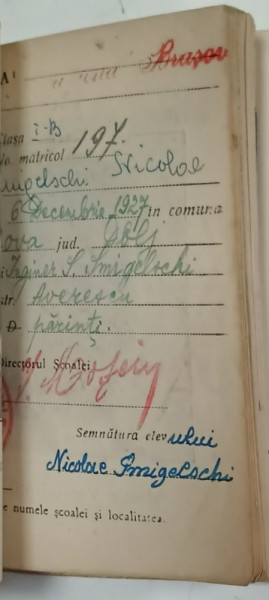 Brașov
Clasa I-B
No. matricol 197.
Smigelschi Nicolae
6 Decembrie 1927 în comuna
jud. Dolj
Inginer S. Smigelschi
str. Averescu
D părinți.
Directorul Școalei
Semnătura elevului
Nicolae Smigelschi
numele școalei și localitatea.